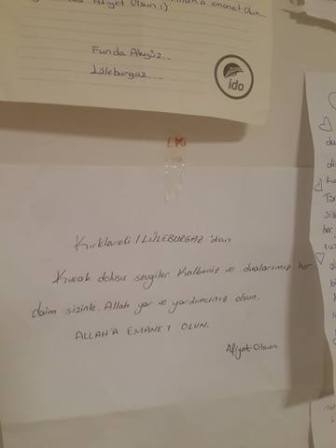 Afiyet Olsun :)
emanet olun
Funda Akgüz...
Lüleburgaz...
ido
Kırklareli / LÜLEBURGAZ'dan
Kucak dolusu sevgiler. Kalbimiz ve dualarımız her
daim sizinle. Allah yar ve yardımcınız olsun.
ALLAH'A EMANET OLUN.
Afiyet Olsun